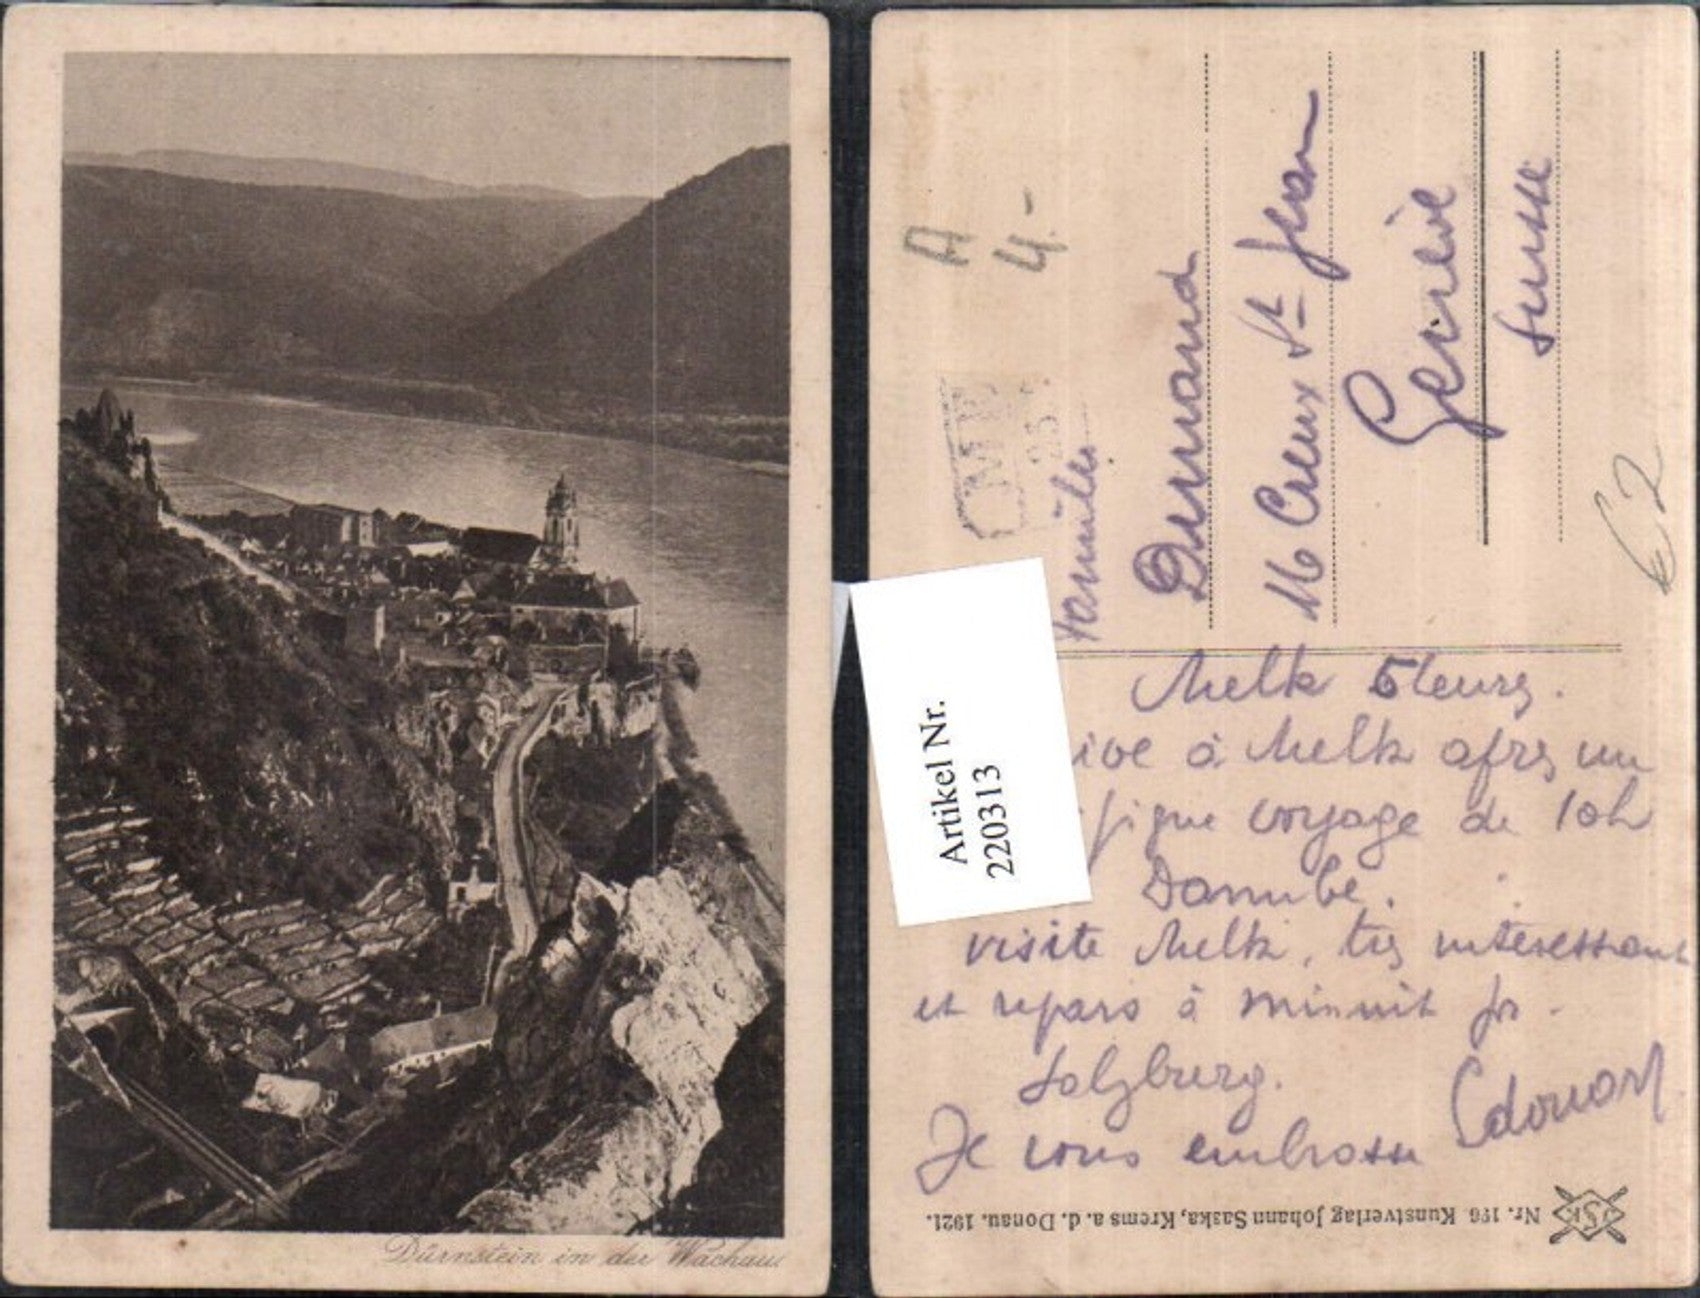 Dürnstein in der Wachau.
A
4.-
Artikel Nr.
220313
Famille
Durand
16 Creux St Jean
Genève
Suisse
€2
Melk 5 heures.
ive à Melk après un
ifique voyage de 10h
Danube.
visite Melk, très intéressant
et repars à minuit pr
Salzburg.
Je vous embrasse Edouard
Nr. 196 Kunstverlag Johann Saska, Krems a. d. Donau. 1921.
JSK